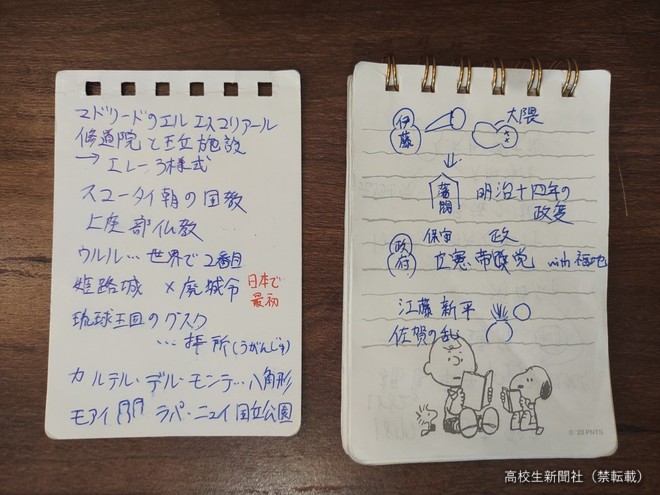 マドリードのエル エスコリアール
修道院と王立施設
→ エレーラ様式
スコータイ朝の国教
上座部仏教
ウルル…世界で2番目
姫路城 × 廃城令 日本で
最初
琉球王国のグスク
…拝所(うがんじゅ)
カルテル・デル・モンテ…八角形
モアイ ラパ・ニュイ国立公園
伊藤
大隈
↓
明治十四年の
政変
政府
保宙 政
立憲帝政党 with 福地
江藤新平
佐賀の乱
© '23 PNTS
高校生新聞社（禁転載）